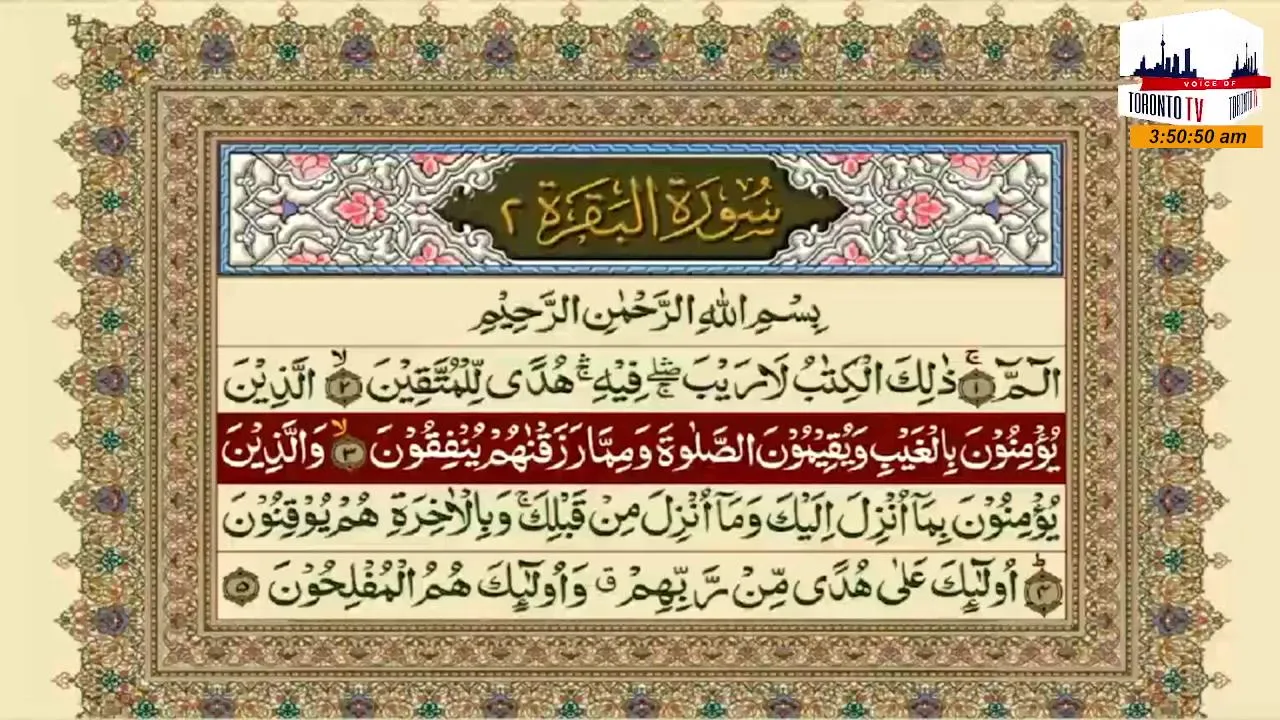 VOICE OF
TORONTO TV
TORONTO
3:50:50 am
سُوْرَةُ الْبَقَرَةِ ٢
بِسْمِ اللّٰهِ الرَّحْمٰنِ الرَّحِيْمِ
الٓمّٓ ۚ‏ ۝١ ذٰلِكَ الْكِتٰبُ لَا رَيْبَ ۛۖۚ فِيْهِ ۛۚ هُدًى لِّلْمُتَّقِيْنَ ۙ ۝٢ الَّذِيْنَ
يُؤْمِنُوْنَ بِالْغَيْبِ وَيُقِيْمُوْنَ الصَّلٰوةَ وَمِمَّا رَزَقْنٰهُمْ يُنْفِقُوْنَ ۙ ۝٣ وَالَّذِيْنَ
يُؤْمِنُوْنَ بِمَآ اُنْزِلَ اِلَيْكَ وَمَآ اُنْزِلَ مِنْ قَبْلِكَ ۚ وَبِالْاٰخِرَةِ هُمْ يُوْقِنُوْنَ
ؕ ۝٤ اُولٰٓئِكَ عَلٰى هُدًى مِّنْ رَّبِّهِمْ ق وَاُولٰٓئِكَ هُمُ الْمُفْلِحُوْنَ ۝٥